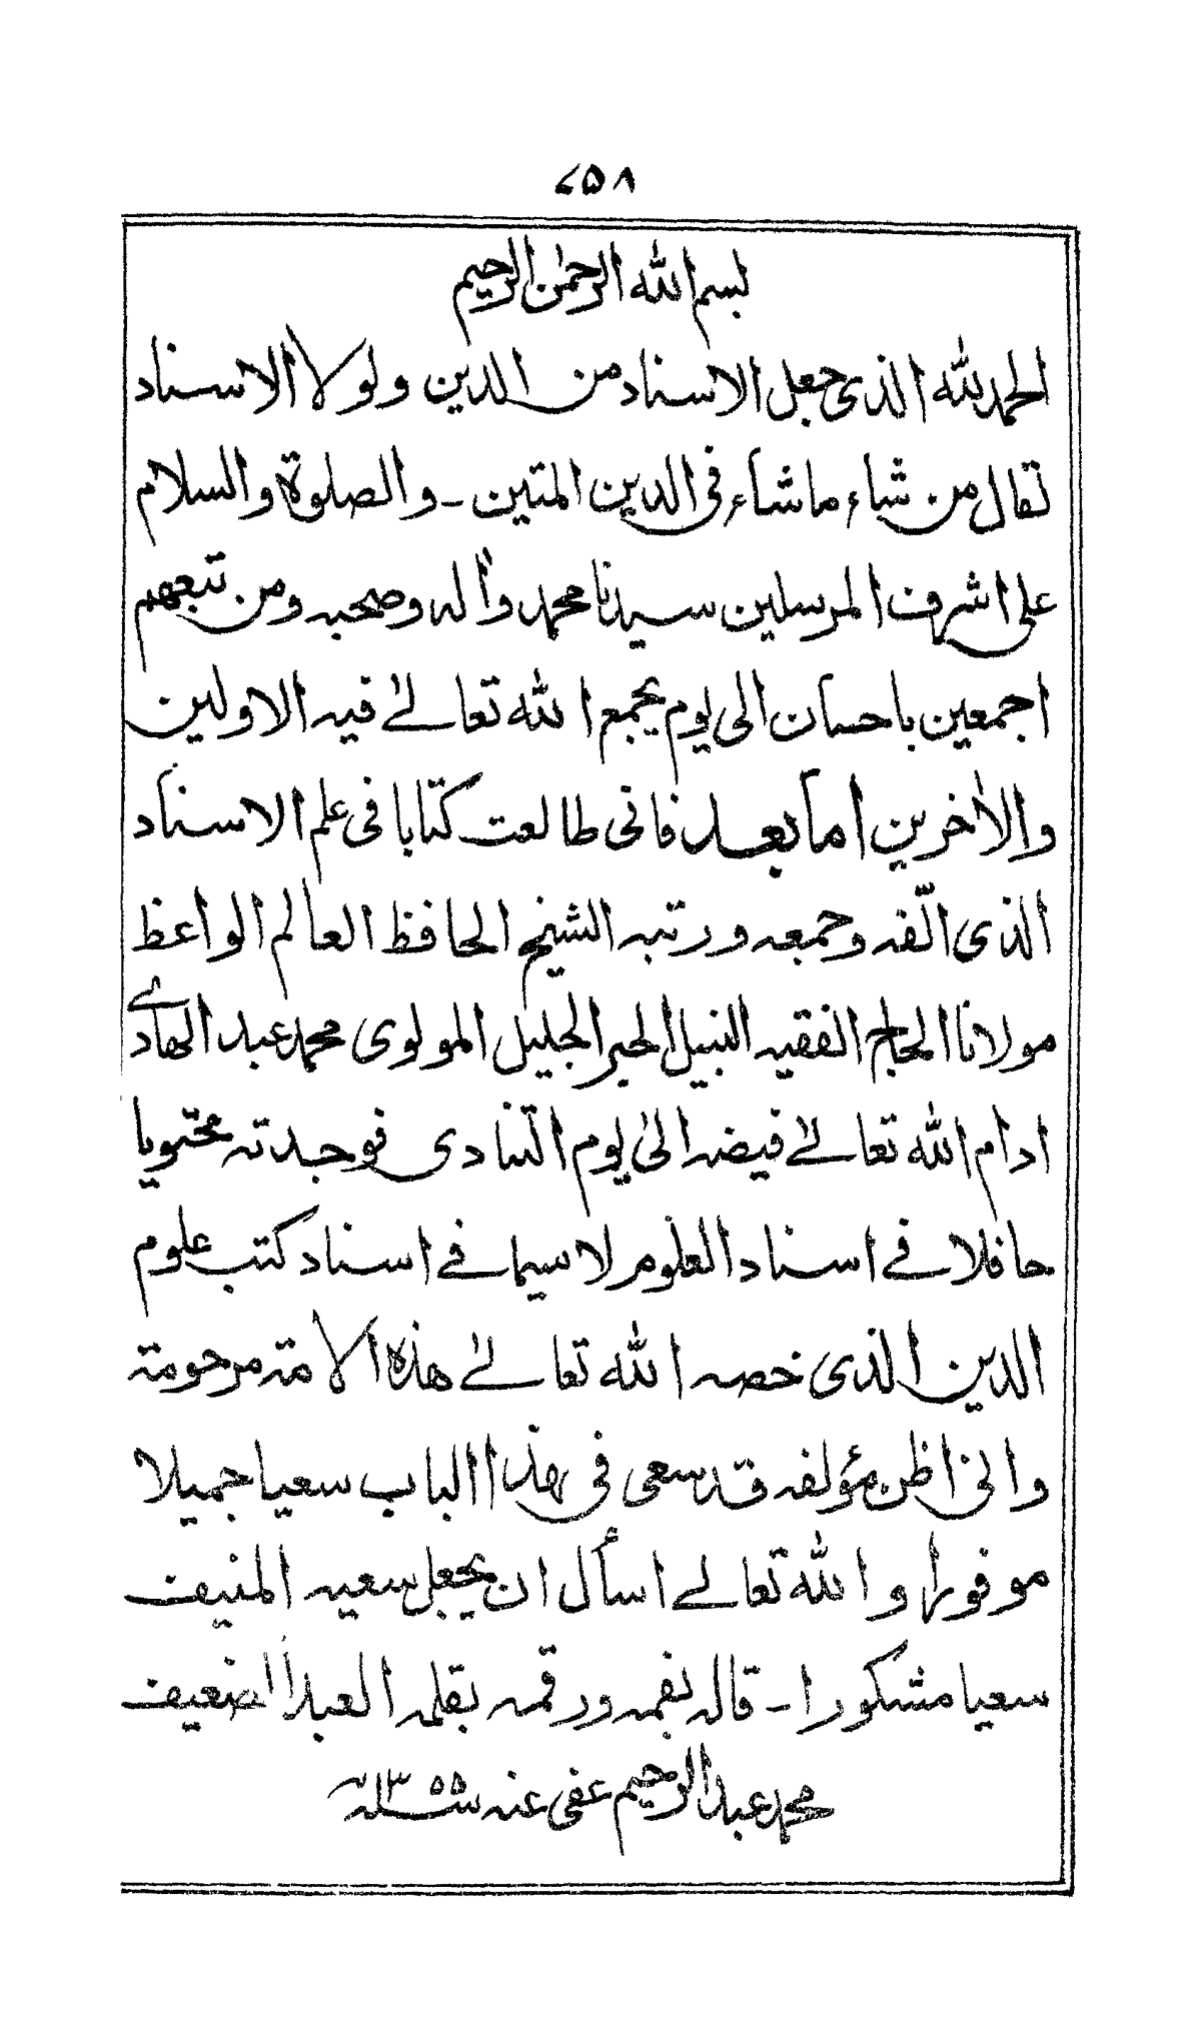 ۴۵۸
بسم الله الرحمٰن الرحيم
الحمد لله الذى جعل الاسناد من الدين ولولا الاسناد
لقال من شاء ما شاء فى الدين المتين ـ والصلوة والسلام
على اشرف المرسلين سيدنا محمد وأله وصحبه ومن تبعهم
اجمعين باحسان الى يوم يجمع الله تعالےٰ فيه الاولين
والأخرين اما بعد فانى طالعت كتابا فى علم الاسناد
الذى الّفه وجمعه ورتبه الشيخ الحافظ العالم الواعظ
مولانا الحاج الفقيه النبيل الحبر الجليل المولوى محمد عبد الهادے
ادام الله تعالےٰ فيضه الىٰ يوم التنادى فوجدته محتويا
حافلا فے اسناد العلوم لا سيما فے اسناد كتب علوم
الدين الذى خصه الله تعالےٰ هذه الامة مرحومة
وانى اظن مؤلفه قد سعى فى هذا الباب سعيا جميلا
موفورا والله تعالے اسأل ان يجعل سعيه المنيف
سعيا مشكورا ـ قاله بفمه ورقمه بقلمه العبد الضعيف
محمد عبد الرحيم عفى عنه سنه ۱۳۵۵